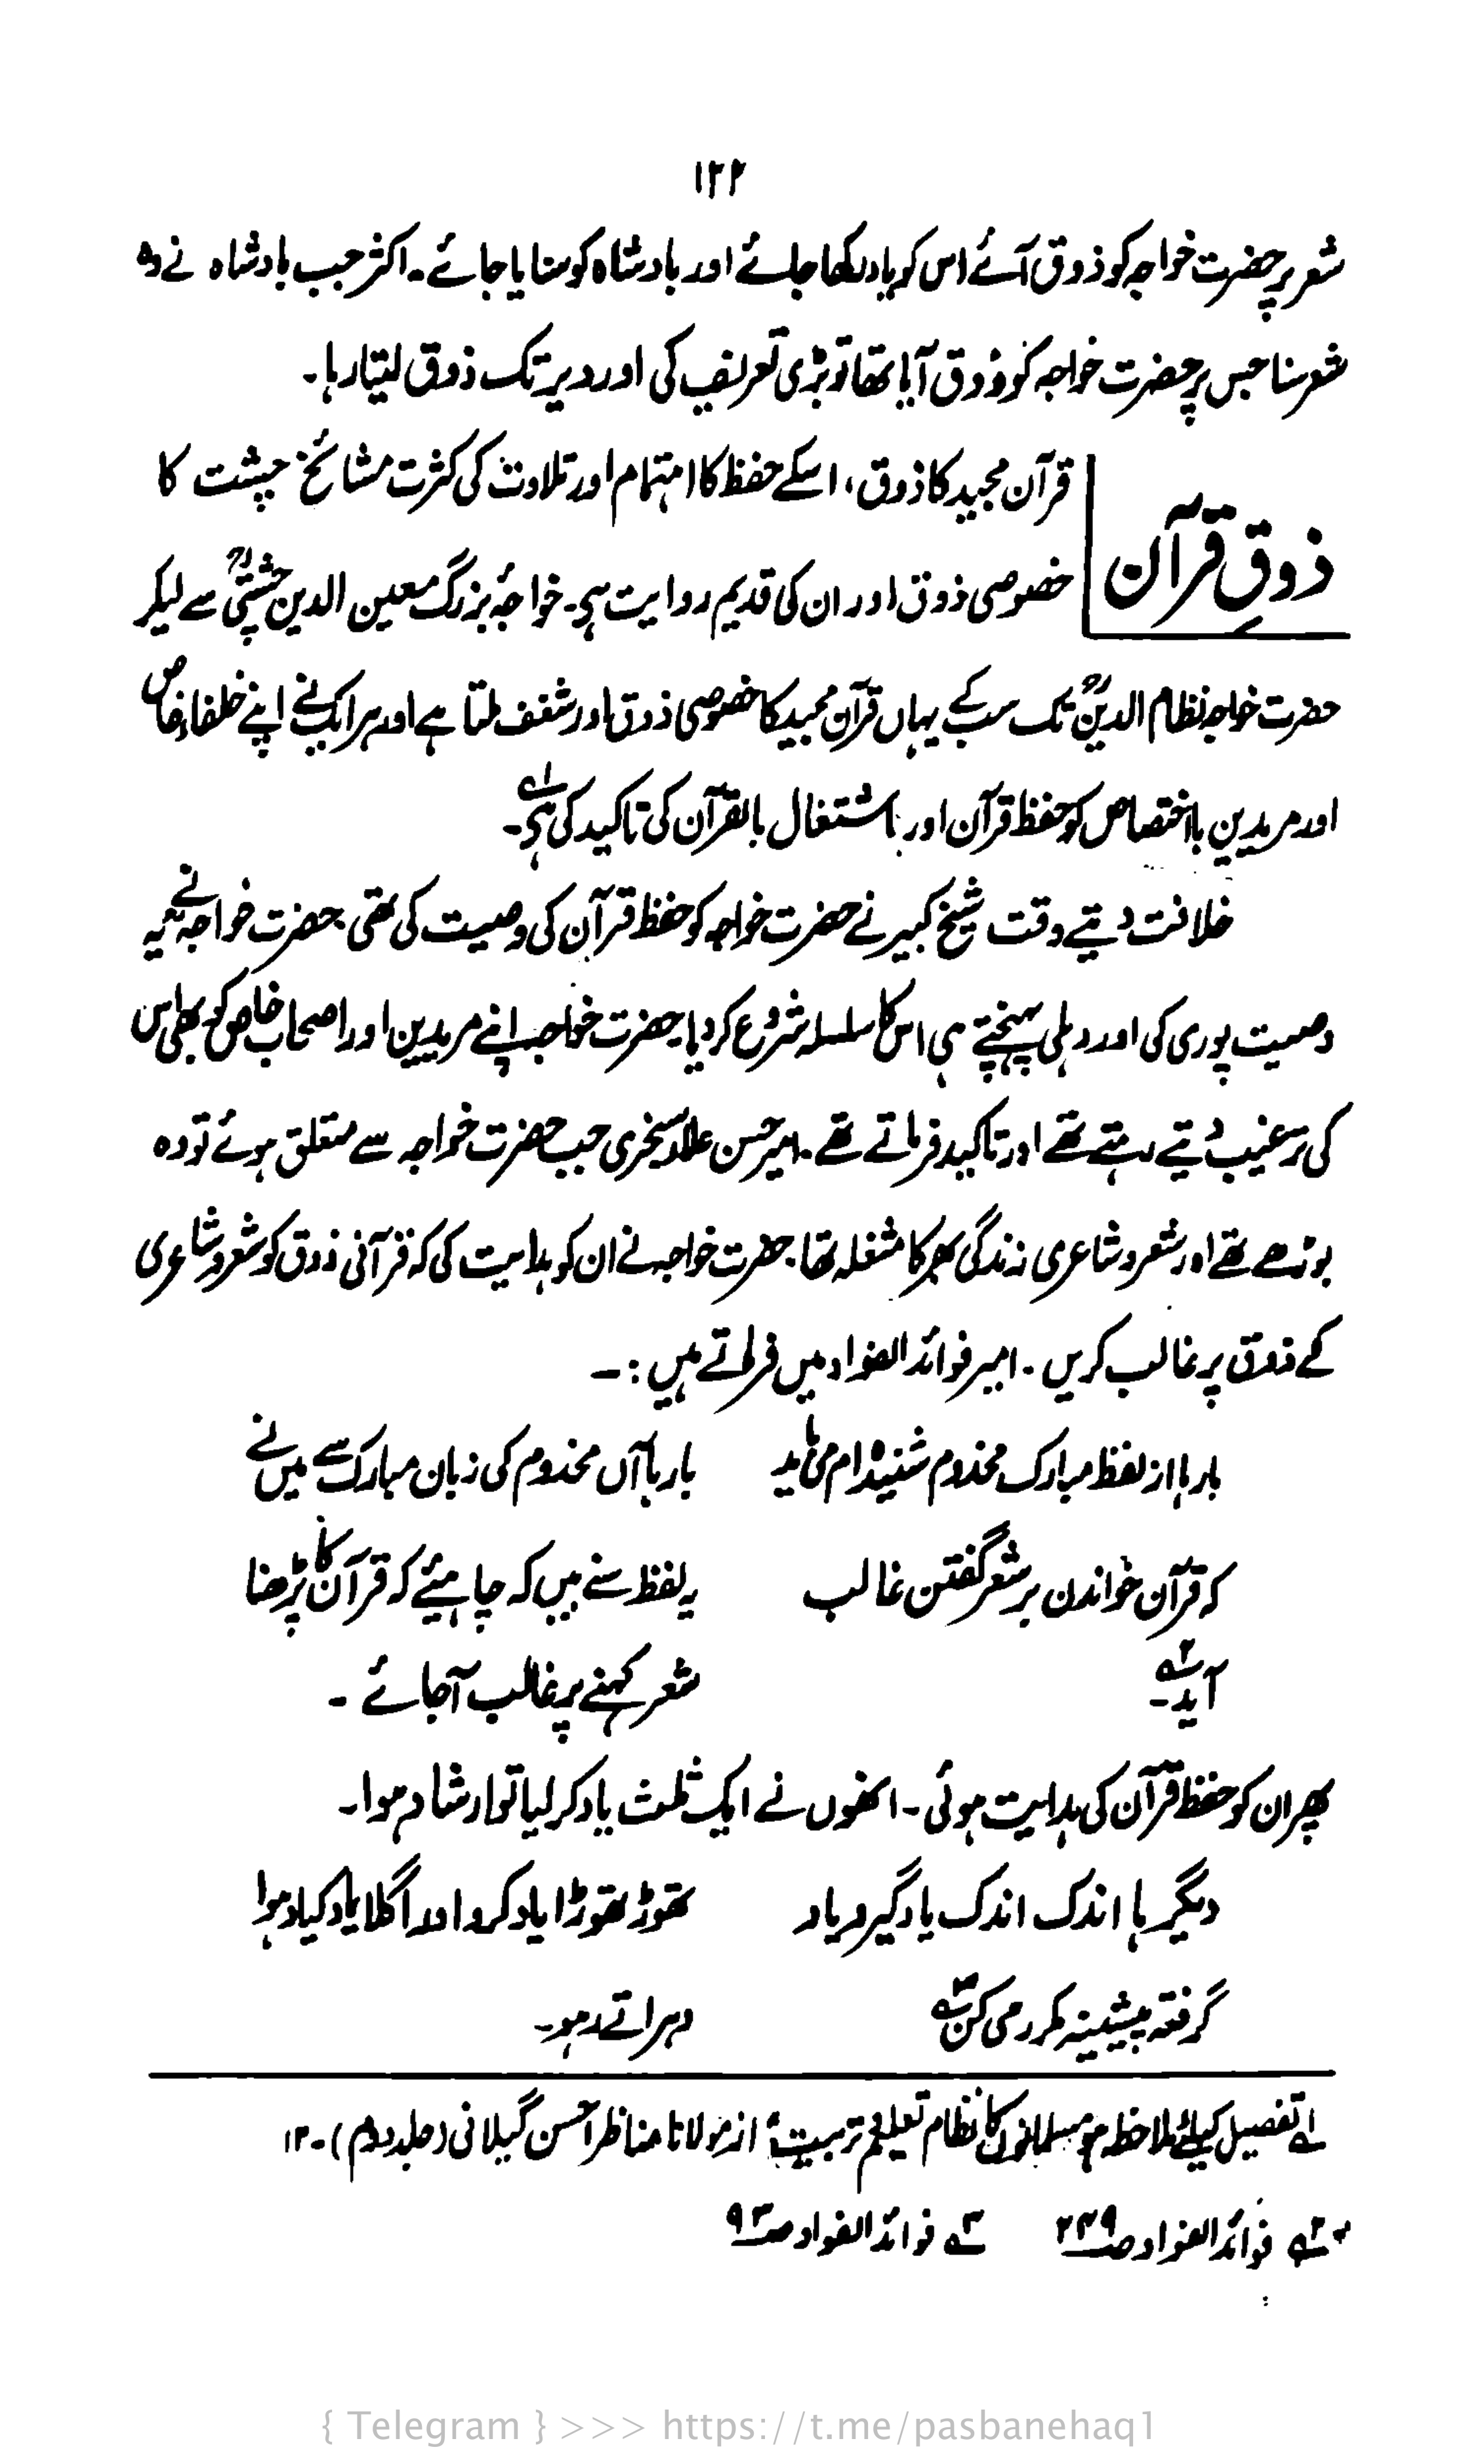 ۱۲۲
شعر پر حضرت خواجہ کو ذوق آئے اس کو یاد رکھا جائے اور بادشاہ کو سنایا جائے۔ اکثر جب بادشاہ نے وہ
شعر سنا جس پر حضرت خواجہ کو ذوق آیا تھا تو بڑی تعریف کی اور دیر تک ذوق لیتا رہا۔
ذوقِ قرآن
قرآن مجید کا ذوق، اسکے حفظ کا اہتمام اور تلاوت کی کثرت مشائخ چشت کا
خصوصی ذوق اور ان کی قدیم روایت ہے۔ خواجۂ بزرگ معین الدین چشتیؒ سے لیکر
حضرت خواجہ نظام الدینؒ تک سب کے یہاں قرآن مجید کا خصوصی ذوق اور شغف ملتا ہے اور ہر ایک نے اپنے خلفاء خاص
اور مریدین بااختصاص کو حفظ قرآن اور اشتغال بالقرآن کی تاکید کی ہے۔ لہ
خلافت دیتے وقت شیخ کبیر نے حضرت خواجہ کو حفظ قرآن کی وصیت کی تھی۔ حضرت خواجہ نے یہ
وصیت پوری کی اور دہلی پہنچتے ہی اس کا سلسلہ شروع کر دیا۔ حضرت خواجہ اپنے مریدین اور اصحاب خاص کو بھی اس
کی ترغیب دیتے رہتے تھے اور تاکید فرماتے تھے۔ امیر حسن علاء سجزی جب حضرت خواجہ سے متعلق ہوئے تو وہ
بوڑھے تھے اور شعر و شاعری زندگی بھر کا مشغلہ تھا۔ حضرت خواجہ نے ان کو ہدایت کی کہ قرآنی ذوق کو شعر و شاعری
کے ذوق پر غالب کریں۔ امیر فوائد الفواد میں فرماتے ہیں :۔
بارہا از لفظ مبارک مخدوم شنیدہ ام می باید
بارہا آں مخدوم کی زبان مبارک سے میں نے
کہ قرآن خواندن بر شعر گفتن غالب
یہ لفظ سنے ہیں کہ چاہیئے کہ قرآن کا پڑھنا
آید۔ ۲ہ
شعر کہنے پر غالب آجائے ۔
پھر ان کو حفظ قرآن کی ہدایت ہوئی۔ انھوں نے ایک ثلث یاد کر لیا تو ارشاد ہوا۔
دیگر ہا اندک اندک یاد گیر و یاد
تھوڑ تھوڑا یاد کرو اور اگلا یاد کیا ہوا
گرفتہ پیشینہ مکرر می کن ۳ہ
دہراتے رہو۔
لہ تفصیل کیلئے ملاحظہ ہو مسلمانوں کا نظام تعلیم و تربیت" از مولانا مناظر احسن گیلانی (جلد دوم)۔ ۱۲
۲ہ فوائد الفواد صہ ۲۴۹ ۳ہ فوائد الفواد صہ ۹۳
{ Telegram } >>> https://t.me/pasbanehaq1